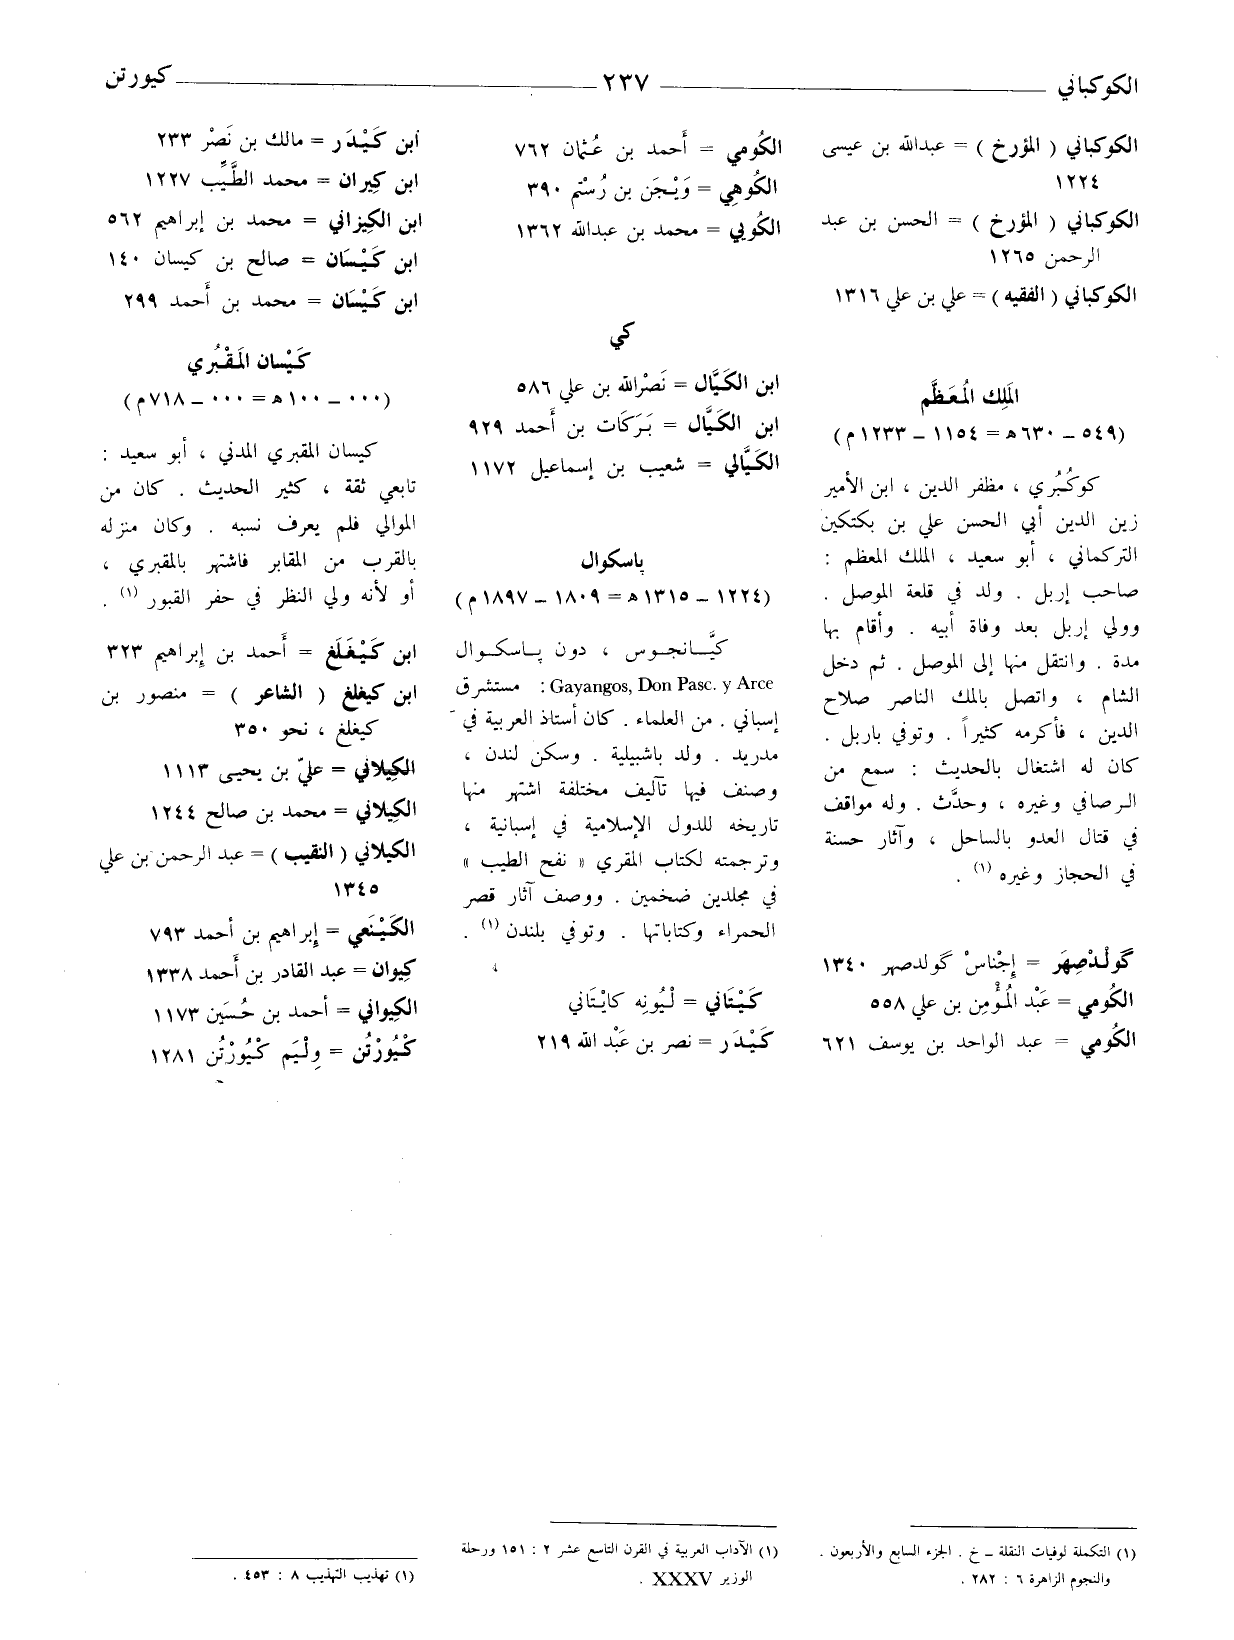 الكوكباني ٢٣٧ كيورتن
الكوكباني ( المؤرخ ) = عبدالله بن عيسى
١٢٢٤
الكوكباني ( المؤرخ ) = الحسن بن عبد
الرحمن ١٢٦٥
الكوكباني ( الفقيه ) = علي بن علي ١٣١٦
المَلِك المُعَظَّم
(٥٤٩ – ٦٣٠ ه = ١١٥٤ – ١٢٣٣ م)
كوكُبُري ، مظفر الدين ، ابن الأمير
زين الدين أبي الحسن علي بن بكتكين
التركماني ، أبو سعيد ، الملك المعظم :
صاحب إربل . ولد في قلعة الموصل .
وولي إربل بعد وفاة أبيه . وأقام بها
مدة . وانتقل منها إلى الموصل . ثم دخل
الشام ، واتصل بالملك الناصر صلاح
الدين ، فأكرمه كثيراً . وتوفي باربل .
كان له اشتغال بالحديث : سمع من
الرصافي وغيره ، وحدَّث . وله مواقف
في قتال العدو بالساحل ، وآثار حسنة
في الحجاز وغيره (١) .
گولْدْصِهَر = إجْناسْ گولدصهر ١٣٤٠
الكُومي = عَبْد المُؤْمِن بن علي ٥٥٨
الكُومي = عبد الواحد بن يوسف ٦٢١
(١) التكملة لوفيات النقلة – خ . الجزء السابع والأربعون .
والنجوم الزاهرة ٦ : ٢٨٢ .
الكُومي = أَحمد بن عُثمان ٧٦٢
الكُوهِي = وَيْجَن بن رُسْتم ٣٩٠
الكُويي = محمد بن عبدالله ١٣٦٢
كي
ابن الكَيَّال = نَصْرالله بن علي ٥٨٦
ابن الكَيَّال = بَرَكَات بن أَحمد ٩٢٩
الكَيَّالي = شعيب بن إسماعيل ١١٧٢
پاسكوال
(١٢٢٤ – ١٣١٥ ه = ١٨٠٩ – ١٨٩٧ م)
كيَّانجوس ، دون پاسكوال
Gayangos, Don Pasc. y Arce : مستشرق
إسباني . من العلماء . كان أستاذ العربية في
مدريد . ولد باشبيلية . وسكن لندن ،
وصنف فيها تآليف مختلفة اشتهر منها
تاريخه للدول الإسلامية في إسبانية ،
وترجمته لكتاب المقري « نفح الطيب »
في مجلدين ضخمين . ووصف آثار قصر
الحمراء وكتاباتها . وتوفي بلندن (١) .
كَيْتَاني = لْيُونه كايْتَاني
كَيْدَر = نصر بن عَبْد الله ٢١٩
(١) الآداب العربية في القرن التاسع عشر ٢ : ١٥١ ورحلة
الوزير XXXV .
ابن كَيْدَر = مالك بن نَصْر ٢٣٣
ابن كِيران = محمد الطَّيِّب ١٢٢٧
ابن الكِيزاني = محمد بن إبراهيم ٥٦٢
ابن كَيْسَان = صالح بن كيسان ١٤٠
ابن كَيْسَان = محمد بن أَحمد ٢٩٩
كَيْسان المَقْبُري
(٠٠٠ – ١٠٠ ه = ٠٠٠ – ٧١٨ م)
كيسان المقبري المدني ، أبو سعيد :
تابعي ثقة ، كثير الحديث . كان من
الموالي فلم يعرف نسبه . وكان منزله
بالقرب من المقابر فاشتهر بالمقبري ،
أو لأنه ولي النظر في حفر القبور (١) .
ابن كَيْغَلَغ = أَحمد بن إِبراهيم ٣٢٣
ابن كيغلغ ( الشاعر ) = منصور بن
كيغلغ ، نحو ٣٥٠
الكِيلاني = عليّ بن يحيى ١١١٣
الكِيلاني = محمد بن صالح ١٢٤٤
الكيلاني ( النقيب ) = عبد الرحمن بن علي
١٣٤٥
الكَيْنَعي = إبراهيم بن أحمد ٧٩٣
كيوان = عبد القادر بن أَحمد ١٣٣٨
الكيواني = أحمد بن حُسَين ١١٧٣
كْيُورْتُن = ولْيَم كْيُورْتُن ١٢٨١
(١) تهذيب التهذيب ٨ : ٤٥٣ .